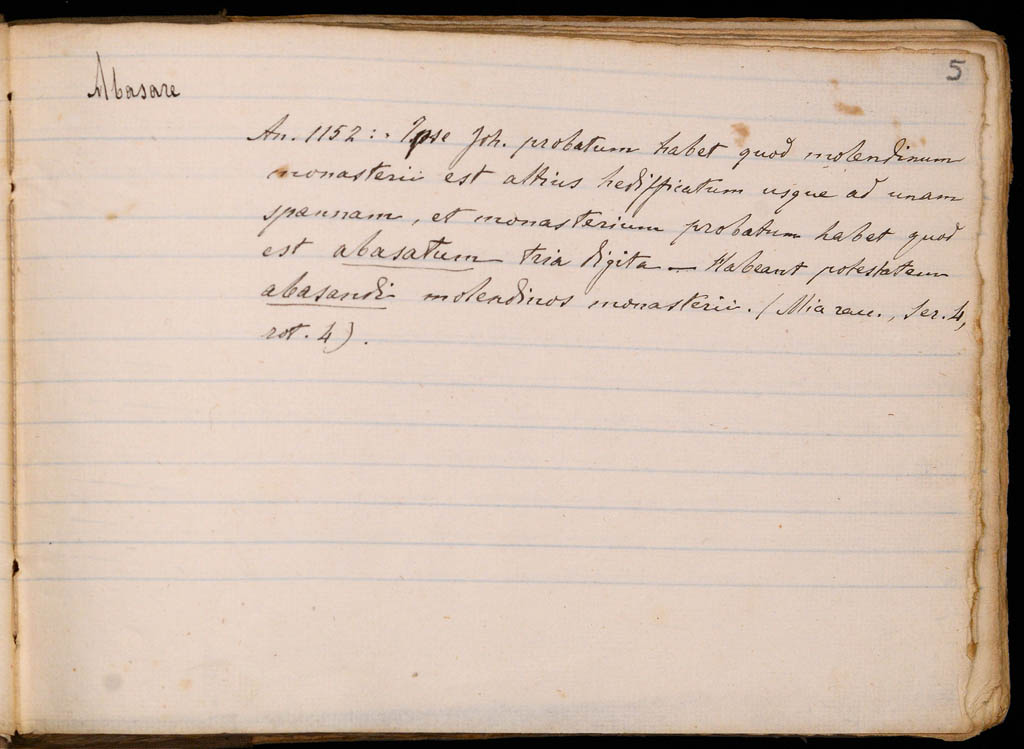 5
Abasare
An. 1152:. Ipse Joh. probatum habet quod molendinum
monasterii est altius hedifficatum usque ad unam
spannam, et monasterium probatum habet quod
est abasatum tria digita — Habeant potestatem
abasandi molendinos monasterii. (Miarau., Ser. 4,
rot. 4).